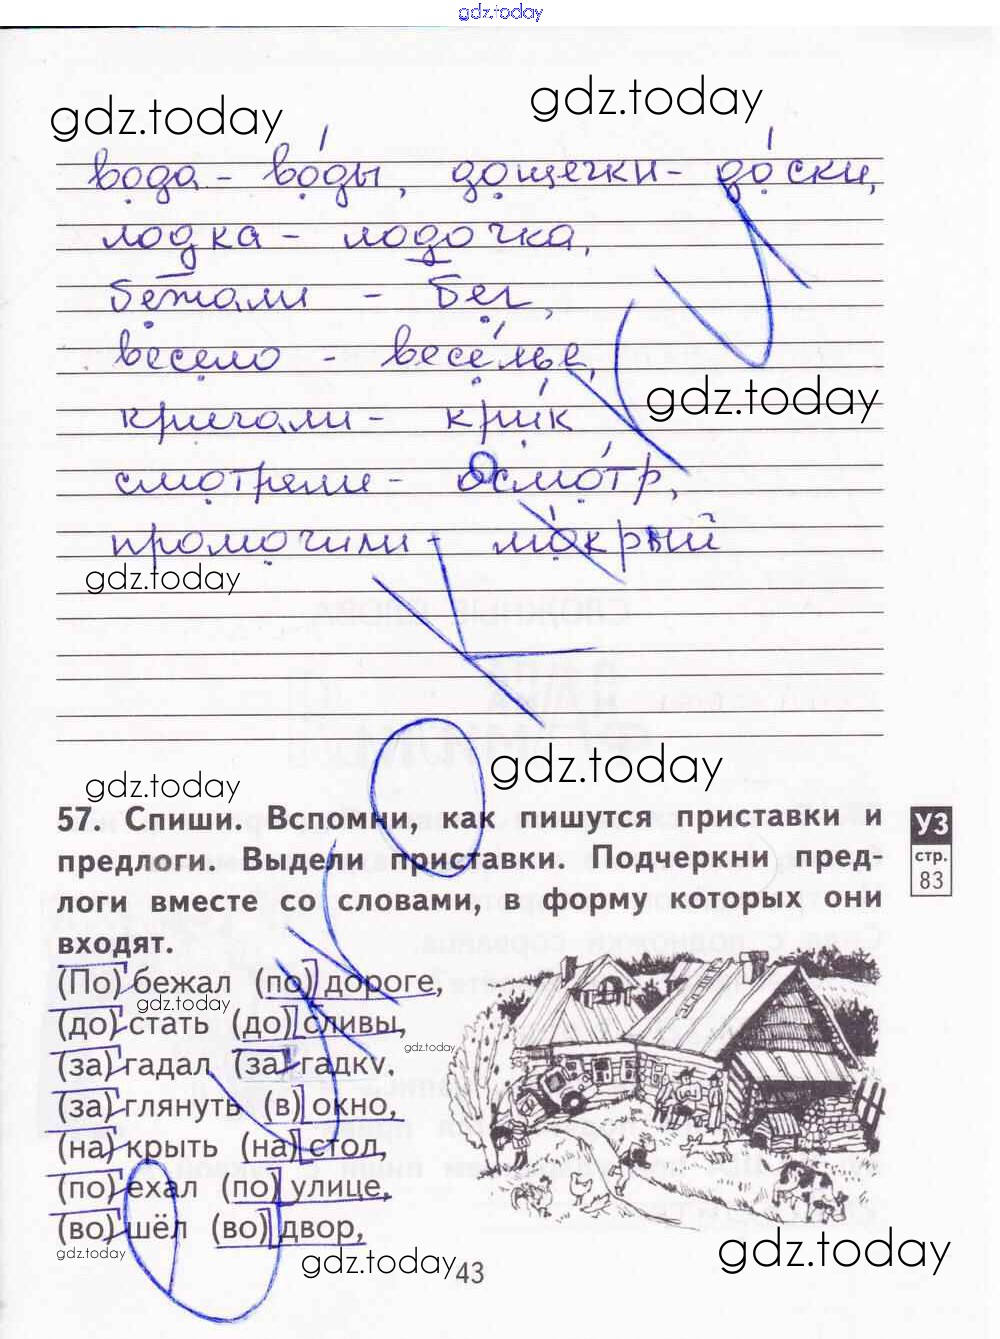 gdz.today
gdz.today gdz.today
вода - во́ды, дощечки - до́ски,
лодка - лодочка,
бежали - бег,
весело - весе́лье,
gdz.today
кричали - кри́к
смотрели - осмо́тр,
промочили - мо́крый
gdz.today
gdz.today
gdz.today
57. Спиши. Вспомни, как пишутся приставки и
предлоги. Выдели приставки. Подчеркни пред-
логи вместе со словами, в форму которых они
входят.
УЗ
стр.
83
(По) бежал (по) дороге,
gdz.today
(до) стать (до) сливы,
gdz.today
(за) гадал (за) гадку,
(за) глянуть (в) окно,
(на) крыть (на) стол,
(по) ехал (по) улице,
(во) шёл (во) двор,
gdz.today gdz.today gdz.today
43